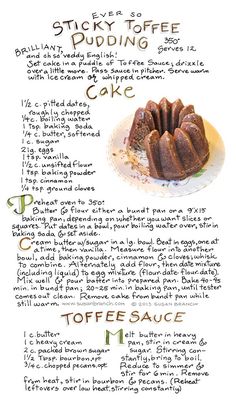 EVER SO
STICKY TOFFEE
PUDDING
350°
Serves 12
BRILLIANT,
and oh so veddy English!
Set cake in a puddle of Toffee Sauce; drizzle
over a little more. Pass Sauce in pitcher. Serve warm
with ice cream or whipped cream.
Cake
1½ c. pitted dates,
roughly chopped
1¼ c. boiling water
1 tsp. baking soda
¼ c. butter, softened
1 c. sugar
2 lg. eggs
1 tsp. vanilla
1½ c. unsifted flour
1 tsp. baking powder
1 tsp. cinnamon
¼ tsp. ground cloves
Preheat oven to 350°.
Butter & flour either a bundt pan or a 9"x13"
baking pan, depending on whether you want slices or
squares. Put dates in a bowl, pour boiling water over, stir in
baking soda, & set aside.
Cream butter w/sugar in a lg. bowl. Beat in eggs, one at
a time, then vanilla. Measure flour into another
bowl, add baking powder, cinnamon & cloves; whisk
to combine. Alternately add flour, then date mixture
(including liquid) to egg mixture (flour-date-flour-date).
Mix well & pour batter into prepared pan. Bake 40-45
min. in bundt pan; 20-25 min. in baking pan, until tester
comes out clean. Remove cake from bundt pan while
still warm. WWW.SUSANBRANCH.COM © 2015 SUSAN BRANCH
TOFFEE SAUCE
1 c. butter
1 c. heavy cream
2 c. packed brown sugar
1½ Tbsp. bourbon, opt.
3/4 c. chopped pecans, opt.
Melt butter in heavy
pan, stir in cream &
sugar. Stirring con-
stantly, bring to boil.
Reduce to simmer &
stir for 6 min. Remove
from heat, stir in bourbon & pecans. (Reheat
leftovers over low heat, stirring constantly)